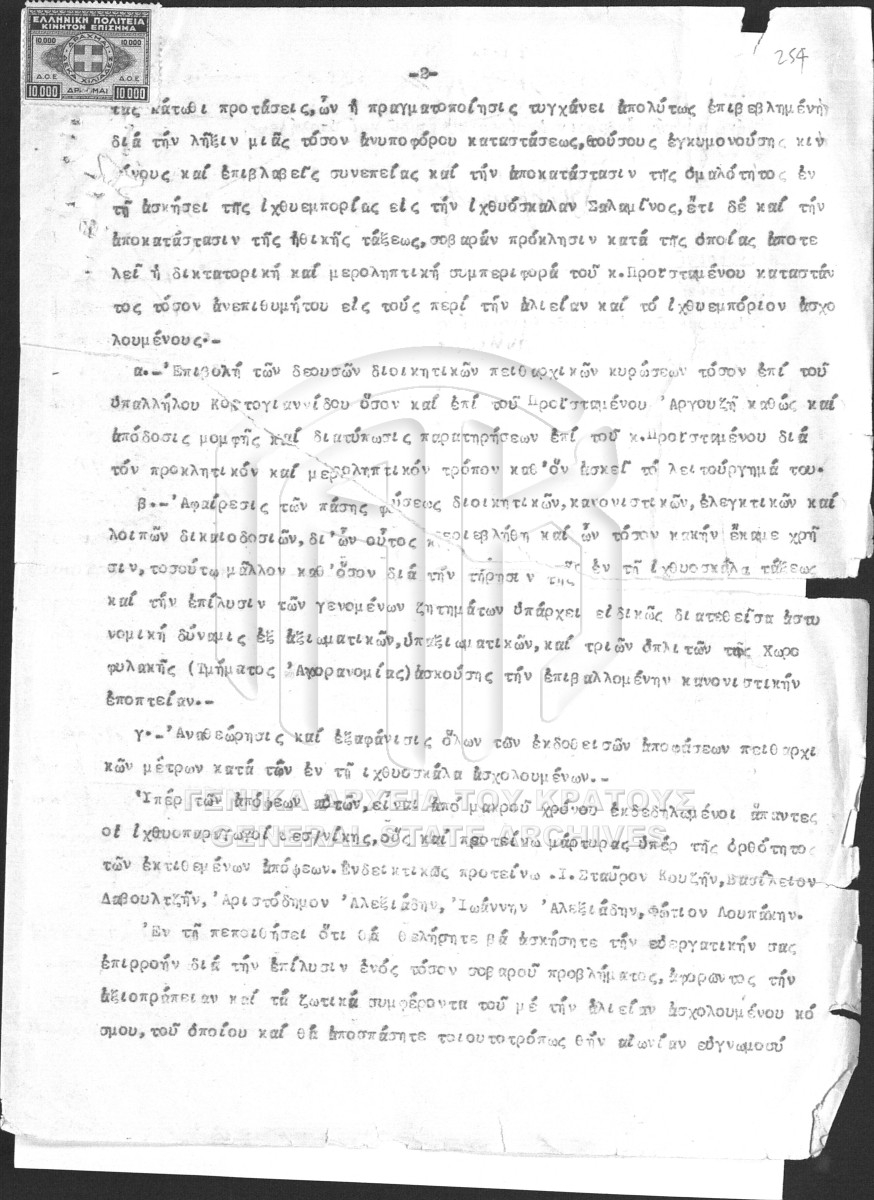 ΕΛΛΗΝΙΚΗ ΠΟΛΙΤΕΙΑ
ΚΙΝΗΤΟΝ ΕΠΙΣΗΜΑ
10.000 ΔΡΑΧΜΑΙ 10.000
ΔΕΚΑ ΧΙΛΙΑΔΕΣ
Δ.Ο.Ε Δ.Ο.Ε
10.000 ΔΡΑΧΜΑΙ 10.000
254
-2-
τάς κάτωθι προτάσεις, ὧν ἡ πραγματοποίησις τυγχάνει ἀπολύτως ἐπιβεβλημένη
διά τήν λῆξιν μιᾶς τόσον ἀνυποφόρου καταστάσεως, θούσους ἐγκυμονούσης κιν
δύνους καί ἐπιβλαβεῖς συνεπείας καί τήν ἀποκατάστασιν τῆς ὁμαλότητος ἐν
τῇ ἀσκήσει τῆς ἰχθυεμπορίας εἰς τήν ἰχθυόσκαλαν Σαλαμῖνος, ἔτι δέ καί τήν
ἀποκατάστασιν τῆς ἠθικῆς τάξεως, σοβαράν πρόκλησιν κατά τῆς ὁποίας ἀποτε
λεῖ ἡ δικτατορική καί μεροληπτική συμπεριφορά τοῦ κ. Προϊσταμένου καταστάν
τος τόσον ἀνεπιθυμήτου εἰς τούς περί τήν ἁλιείαν καί τό ἰχθυεμπόριον ἀσχο
λουμένους.-
α.-Ἐπιβολή τῶν δεουσῶν διοικητικῶν πειθαρχικῶν κυρώσεων τόσον ἐπί τοῦ
ὑπαλλήλου Κορτογιαννίδου ὅσον καί ἐπί τοῦ Προϊσταμένου Ἀργουζῆ καθώς καί
ἀπόδοσις μομφῆς καί διατύπωσις παρατηρήσεων ἐπί τοῦ κ. Προϊσταμένου διά
τόν προκλητικόν καί μεροληπτικόν τρόπον καθ'ὅν ἀσκεῖ τό λειτούργημά του.
β.-Ἀφαίρεσις τῶν πάσης φύσεως διοικητικῶν, κανονιστικῶν, ἐλεγκτικῶν καί
λοιπῶν δικαιοδοσιῶν, δι'ὧν οὗτος περιεβλήθη καί ὧν τόσον κακήν ἔκαμε χρῆ
σιν, τοσούτῳ μᾶλλον καθ'ὅσον διά τήν τήρησιν τῆς ἐν τῇ ἰχθυοσκάλα τάξεως
καί τήν ἐπίλυσιν τῶν γενομένων ζητημάτων ὑπάρχει εἰδικῶς διατεθεῖσα ἀστυ
νομική δύναμις ἐξ ἀξιωματικῶν, ὑπαξιωματικῶν, καί τριῶν ὁπλιτῶν τῆς Χωρο
φυλακῆς (Τμήματος Ἀγορανομίας) ἀσκούσης τήν ἐπιβαλλομένην κανονιστικήν
ἐποπτείαν.-
γ.-Ἀναθεώρησις καί ἐξαφάνισις ὅλων τῶν ἐκδοθεισῶν ἀποφάσεων πειθαρχι
κῶν μέτρων κατά τῶν ἐν τῇ ἰχθυοσκάλα ἀσχολουμένων.-
Ὑπέρ τῶν ἀπόψεων αὐτῶν, εἶναι ἀπό μακροῦ χρόνου ἐκδεδηλωμένοι ἅπαντες
οἱ ἰχθυοπαραγωγοί Θεσ/νίκης, οὕς καί προτείνω μάρτυρας ὑπέρ τῆς ὀρθότητος
τῶν ἐκτιθεμένων ἀπόψεων. Ἐνδεικτικῶς προτείνω .Ι. Σταῦρον Κουζῆν, Βασίλειον
Δαβουλτζῆν, Ἀριστόδημον Ἀλεξιάδην, Ἰωάννην Ἀλεξιάδην, Φώτιον Λουπάκην.
Ἐν τῇ πεποιθήσει ὅτι θά θελήσητε νά ἀσκήσητε τήν εὐεργατικήν σας
ἐπιρροήν διά τήν ἐπίλυσιν ἑνός τόσον σοβαροῦ προβλήματος, ἀφορῶντος τήν
ἀξιοπρέπειαν καί τά ζωτικά συμφέροντα τοῦ μέ τήν ἁλιείαν ἀσχολουμένου κό
σμου, τοῦ ὁποίου καί θά ἀποσπάσητε τοιουτοτρόπως θήν αἰωνίαν εὐγνωμοσύ
ΓΕΝΙΚΑ ΑΡΧΕΙΑ ΤΟΥ ΚΡΑΤΟΥΣ
GENERAL STATE ARCHIVES